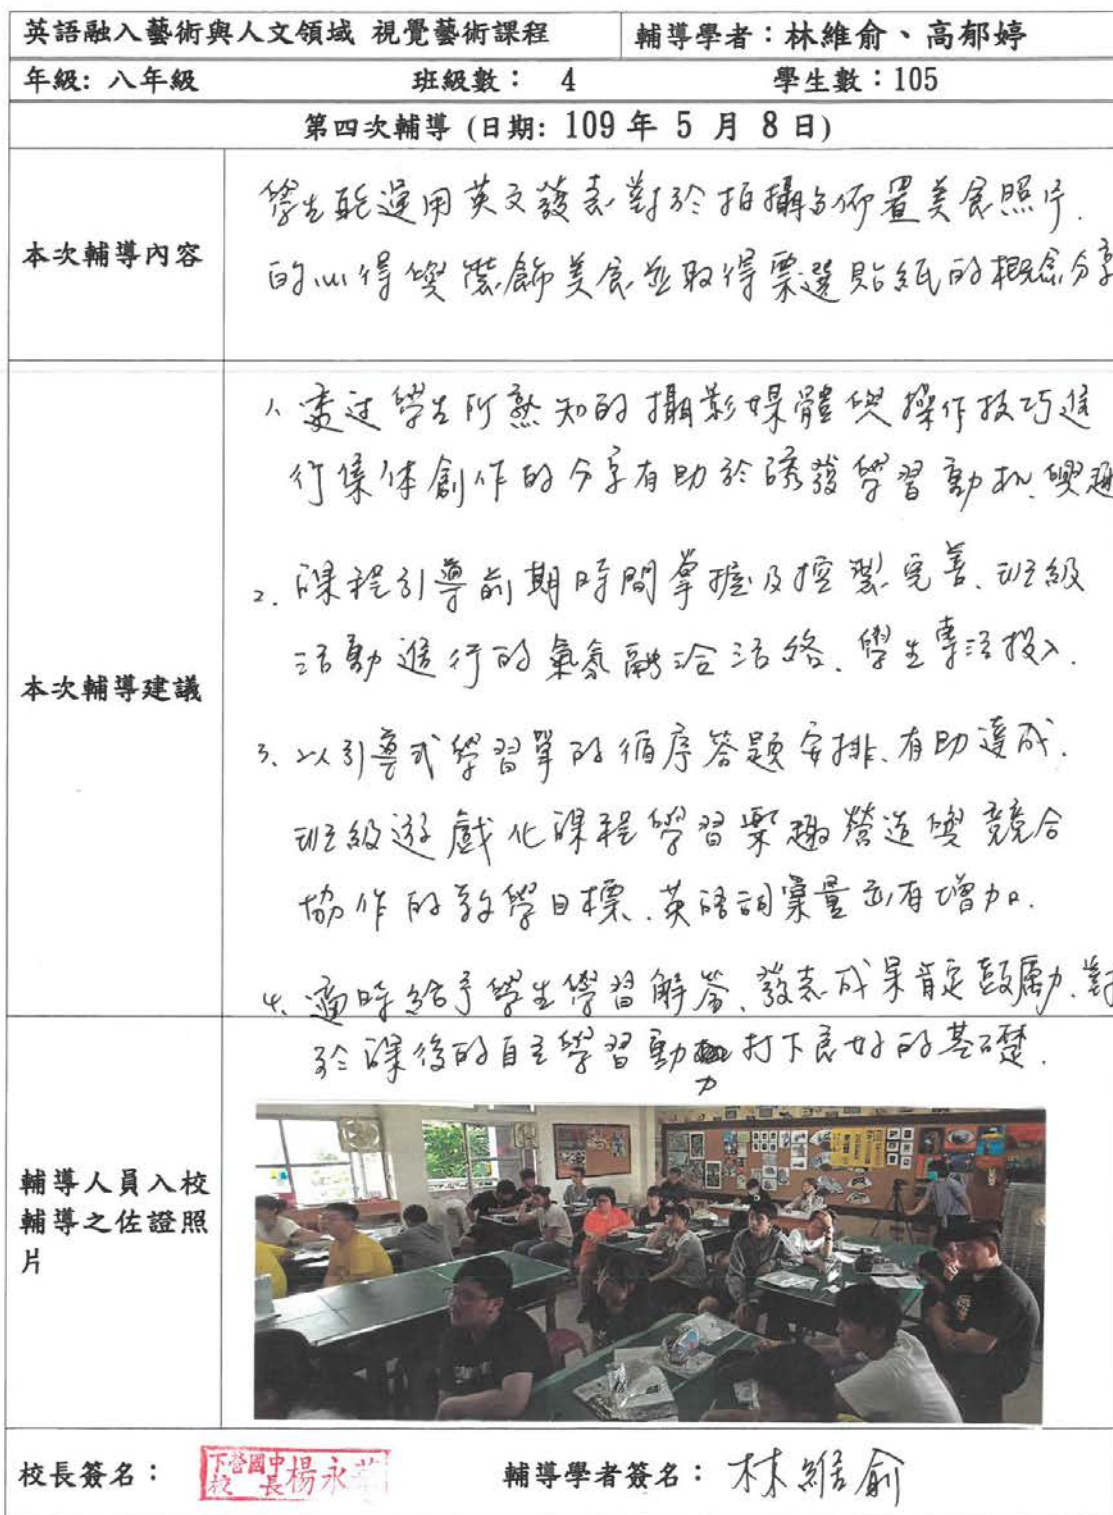 英語融入藝術與人文領域 視覺藝術課程 輔導學者：林維俞、高郁婷
年級: 八年級 班級數： 4 學生數：105
第四次輔導 (日期: 109 年 5 月 8 日)
本次輔導內容
學生能運用英文發表對於拍攝與佈置美展照片.
的心得與裝飾美展並取得票選貼紙的概念分享
本次輔導建議
1. 透过學生所熟知的攝影媒體與操作技巧進
行集体創作的分享有助於誘發學習動机、與趣
2. 課程引導前期時間掌握及控製完善、班級
活動進行的氣氛融洽活絡、學生專注投入.
3. 以引導式學習單的循序答題安排、有助達成.
班級遊戲化課程學習樂趣營造與競合
協作的教學目標、英語詞彙量亦有增加.
4. 適時給予學生學習解答、發表成果肯定鼓勵、對
於課後的自主學習動力打下良好的基礎.
輔導人員入校
輔導之佐證照
片
校長簽名： 下營國中校長楊永 輔導學者簽名： 林維俞